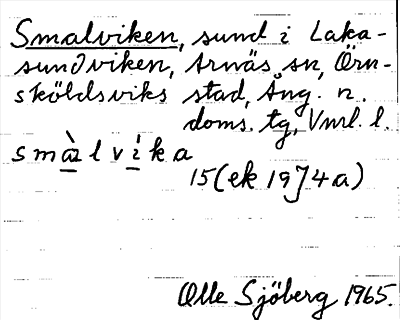 Smalviken, sund i Laka-
sundviken, Arnäs sn, Örn-
sköldsviks stad, Ång. n.
doms. tg, Vnrl. l.
smàlvíka
15 (ek 19J4a)
Olle Sjöberg 1965.